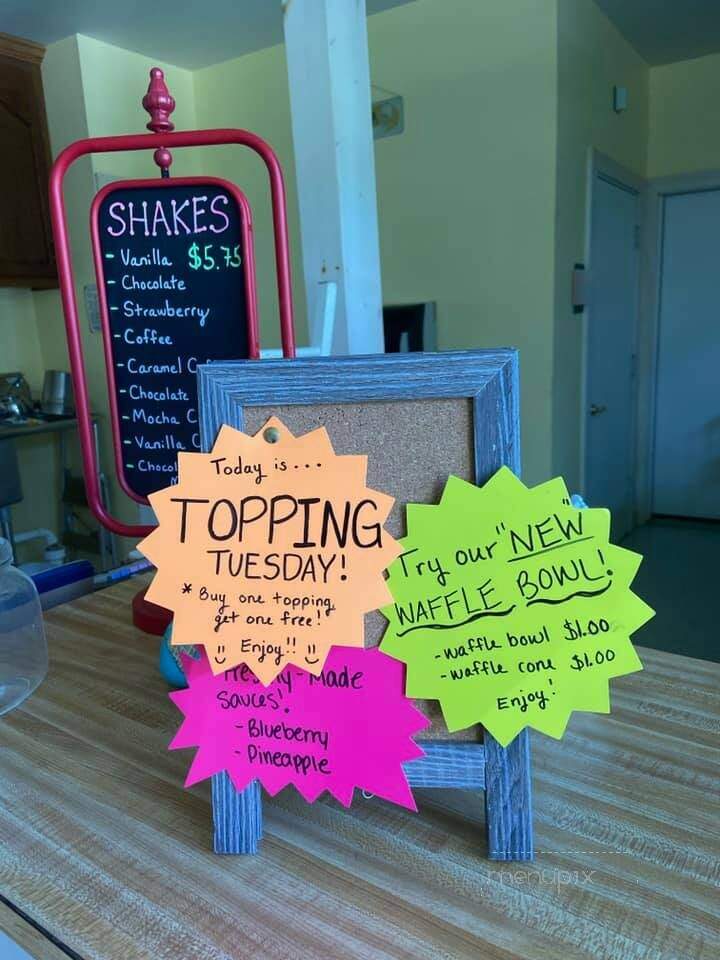 SHAKES
- Vanilla $5.75
- Chocolate
- Strawberry
- Coffee
- Caramel
- Chocolate
- Mocha
- Vanilla
Today is...
TOPPING
TUESDAY!
* Buy one topping,
get one free!
Enjoy!!
Try our "NEW"
WAFFLE BOWL!
- waffle bowl $1.00
- waffle cone $1.00
Enjoy!
-Made
Sauces!
- Blueberry
- Pineapple
menupix